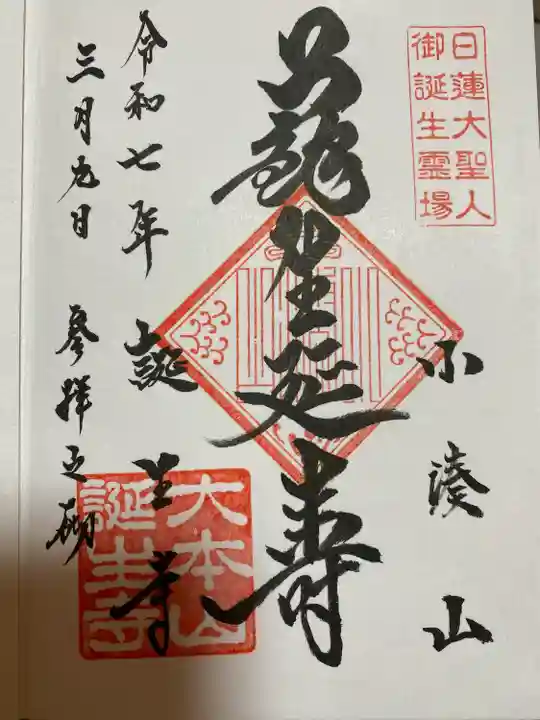 日蓮大聖人
御誕生霊場
小湊山
生延壽
誕生寺
令和七年
三月九日 参拝之砌
大本山
誕生寺